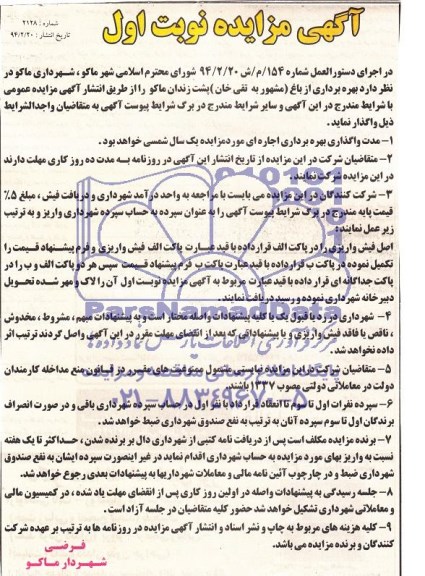 آگهی مزایده نوبت اول
شماره : ۲۱۲۸
تاریخ انتشار : ۹۴/۲/۲۰
در اجرای دستورالعمل شماره ۱۵۴/م/ش ۹۴/۲/۲۰ شورای محترم اسلامی شهر ماکو ، شهرداری ماکو در
نظر دارد بهره برداری از باغ (مشهور به نقی خان) پشت زندان ماکو را از طریق انتشار آگهی مزایده عمومی
با شرایط مندرج در این آگهی و سایر شرایط مندرج در برگ شرایط پیوست آگهی به متقاضیان واجدالشرایط
ذیل واگذار نماید .
۱- مدت واگذاری بهره برداری اجاره ای موردمزایده یک سال شمسی خواهد بود .
۲- متقاضیان شرکت در این مزایده از تاریخ انتشار این آگهی در روزنامه به مدت ده روز کاری مهلت دارند
در این مزایده شرکت نمایند.
۳- شرکت کنندگان در این مزایده می بایست با مراجعه به واحد درآمد شهرداری و دریافت فیش ، مبلغ ۵٪
قیمت پایه مندرج در برگ شرایط پیوست آگهی را به عنوان سپرده به حساب سپرده شهرداری واریز و به ترتیب
زیر عمل نمایند :
اصل فیش واریزی را در پاکت الف قرار داده با قید عبارت پاکت الف فیش واریزی و فرم پیشنهاد قیمت را
تکمیل نموده در پاکت ب قرار داده با قید عبارت پاکت ب فرم پیشنهاد قیمت سپس هر دو پاکت الف و ب را در
پاکت جداگانه ای قرار داده با قید عبارت مربوط به آگهی مزایده نوبت اول آن را لاک و مهر شده تحویل
دبیر خانه شهرداری نموده و رسید دریافت نمایند.
۴- شهرداری در رد یا قبول یک یا کلیه پیشنهادات واصله مختار است و به پیشنهادات مبهم ، مشروط ، مخدوش
، ناقص یا فاقد فیش واریزی و یا پیشنهاداتی که بعد از انقضای مهلت مقرر در این آگهی واصل گردند ترتیب اثر
داده نخواهد شد.
۵- متقاضیان شرکت در این مزایده نبایستی مشمول ممنوعیت های مقرر در قانون منع مداخله کارمندان
دولت در معاملاتی دولتی مصوب ۱۳۳۷ باشند.
۶- سپرده نفرات اول تا سوم تا انعقاد قرارداد با نفر اول در حساب سپرده شهرداری باقی و در صورت انصراف
برندگان اول تا سوم سپرده آنان به ترتیب به نفع صندوق شهرداری ضبط خواهد شد.
۷- برنده مزایده مکلف است پس از دریافت نامه کتبی از شهرداری دال بر برنده شدن ، حداکثر تا یک هفته
نسبت به واریز بهای مورد مزایده به حساب شهرداری اقدام نماید در غیر اینصورت سپرده ایشان به نفع صندوق
شهرداری ضبط و در چارچوب آئین نامه مالی و معاملات شهرداریها به پیشنهادات بعدی رجوع خواهد شد.
۸- جلسه رسیدگی به پیشنهادات واصله در اولین روز کاری پس از انقضای مهلت یاد شده ، در کمیسیون مالی و
و معاملاتی شهرداری تشکیل خواهد شد حضور کلیه متقاضیان در جلسه آزاد است .
۹- کلیه هزینه های مربوط به چاپ و نشر اسناد و انتشار آگهی مزایده در روزنامه ها به ترتیب بر عهده شرکت
کنندگان و برنده مزایده می باشد.
فرضی
شهردار ماکو
ParsNamadData
۰۲۱-۸۸۳۴۹۶۷۰-۵